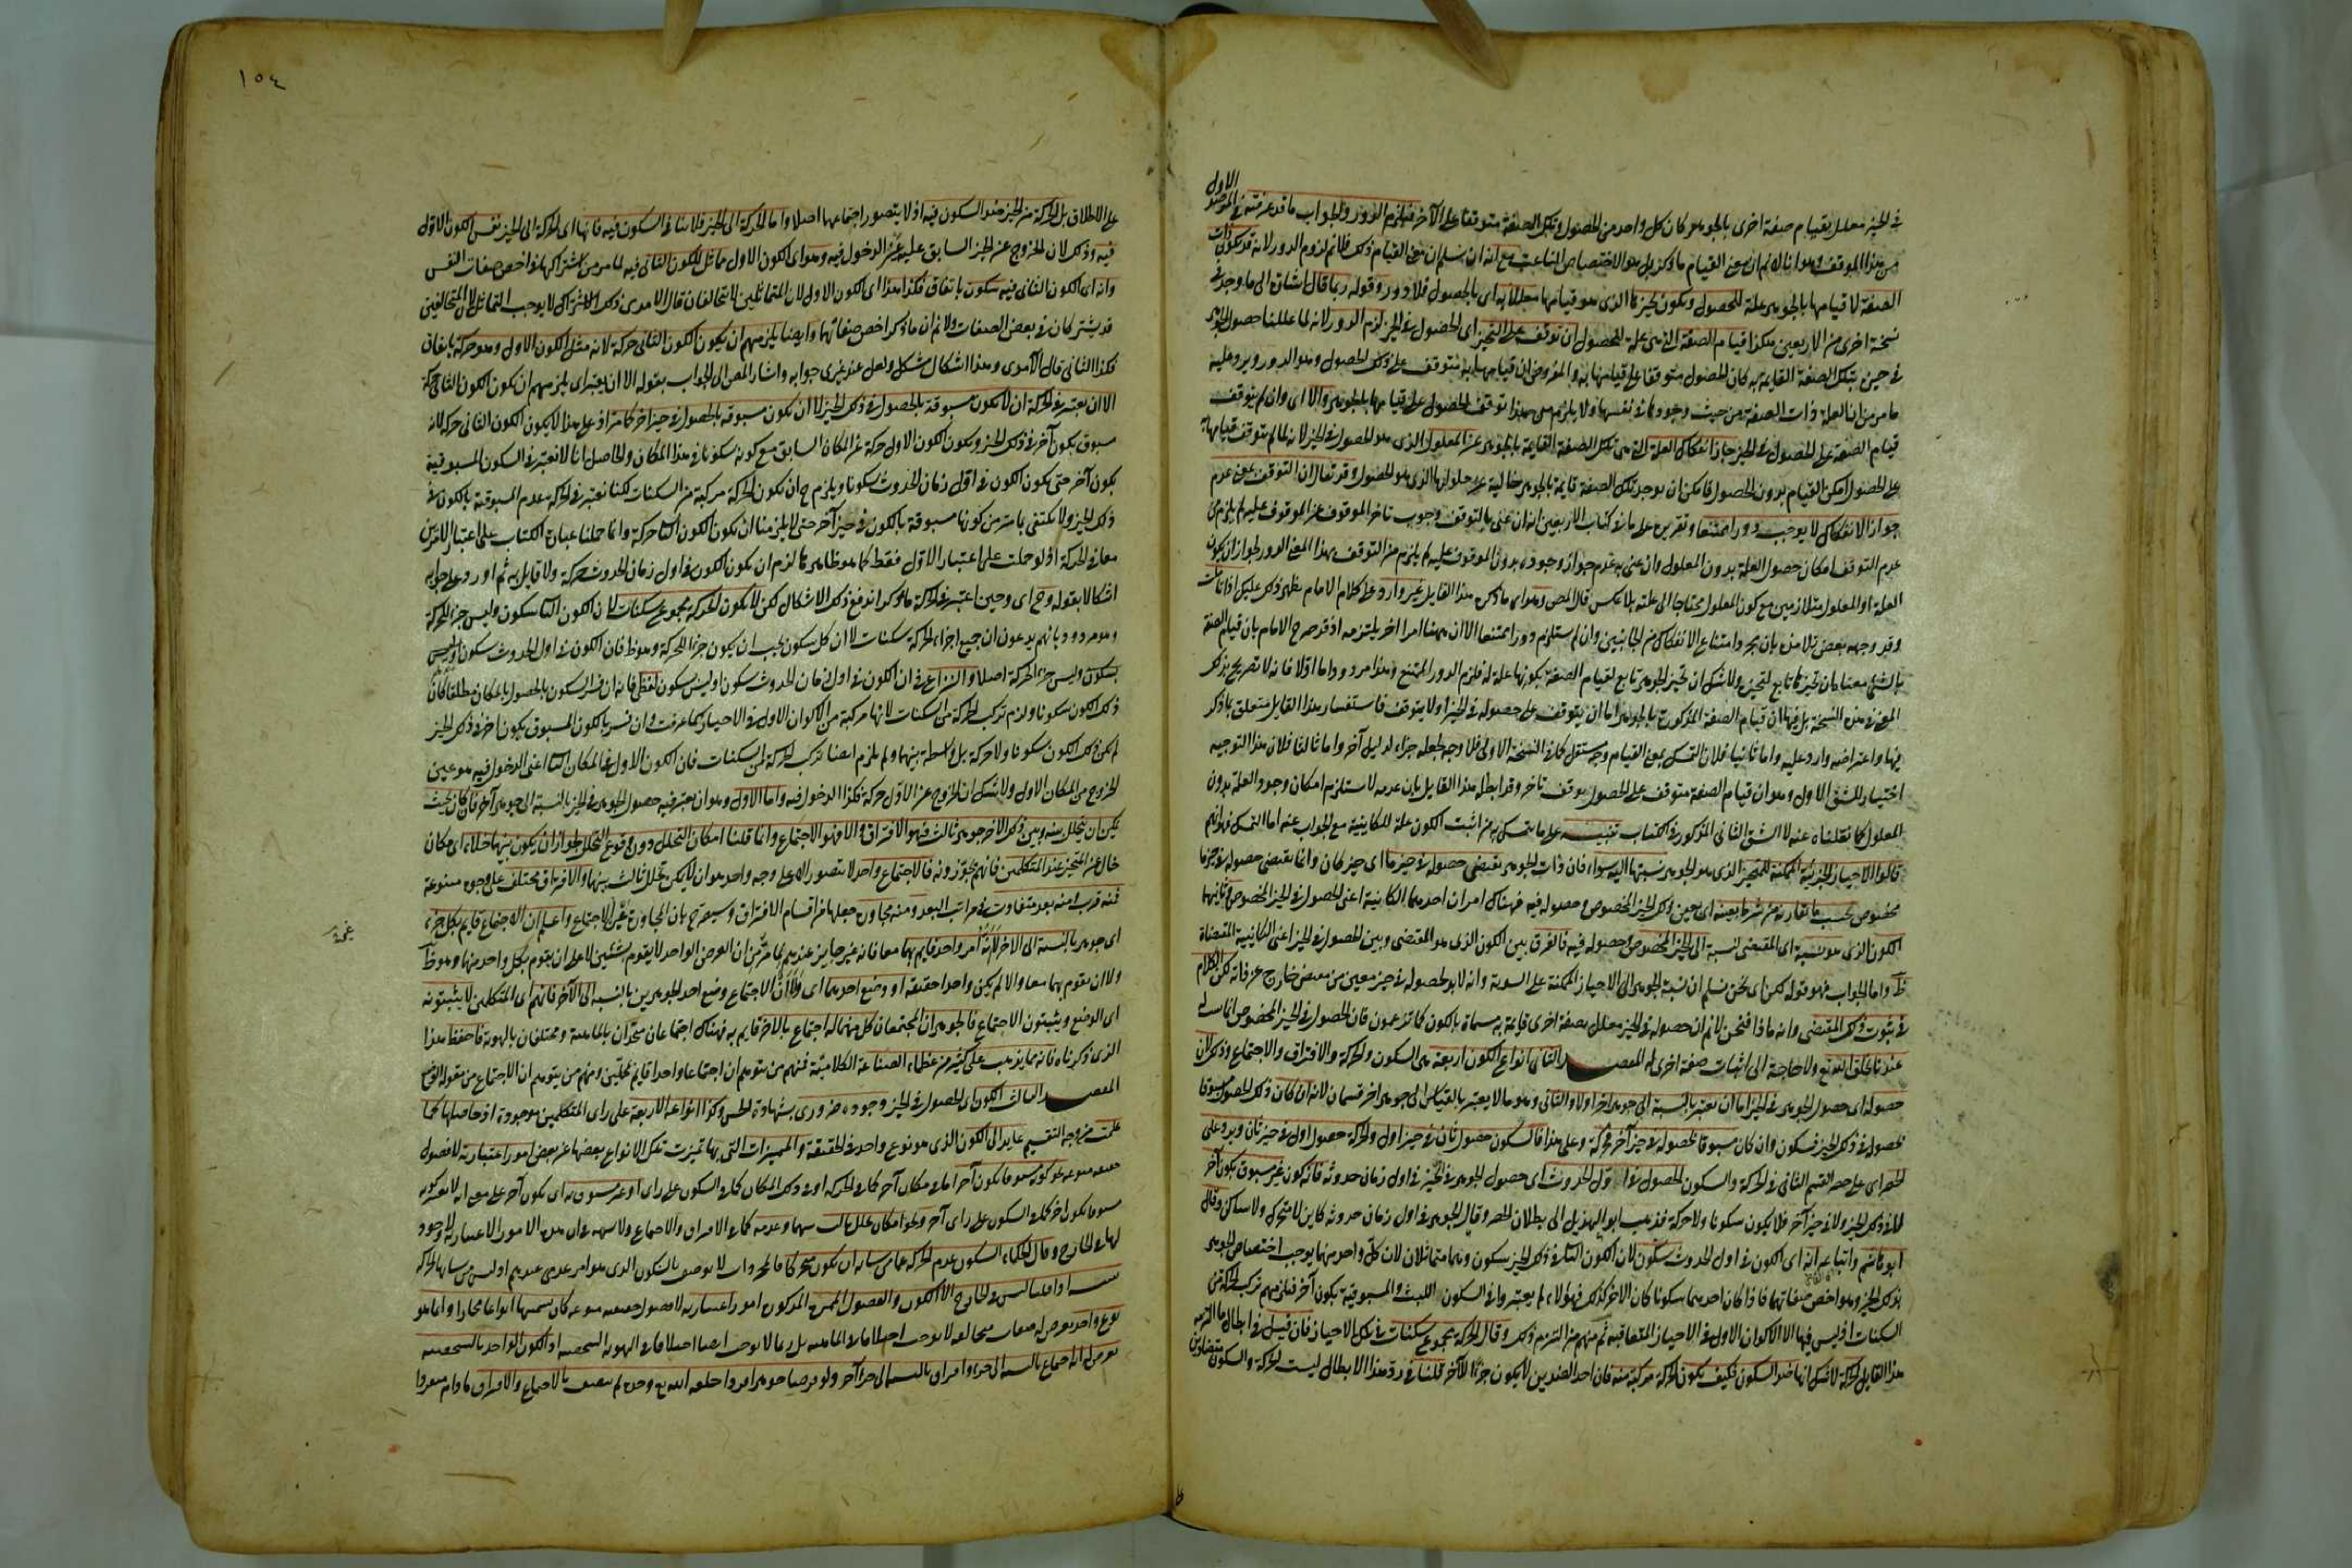 في الحيز معلل بقيام صفة اخرى بالجوهر كان كل واحد من الحصول وتلك الصفة متوقفا على الآخر فيلزم الدور والجواب ما قد عرفته في الموقف الاول
من هذا الموقف وهو انا لا نم ان معنى القيام ما ذكر بل هو الاختصاص الناعت مع انه ان سلم ان معنى القيام ذلك فلا نم لزوم الدور لانه قد يكون ذات
الصفة لا قيامها بالجوهر علة للحصول ويكون تحيزها الذى هو قيامها معللا به اى بالحصول فلا دور وقوله ربما قال اشارة الى ما وجد في
نسخة اخرى من الاربعين هكذا قيام الصفة التى هى علة للحصول ان توقف على التحيز اى الحصول في الحيز لزم الدور لانه لما عللنا حصول الجوهر
في حيز بتلك الصفة القايمة به كان الحصول متوقفا على قيامها به والمفروض ان قيامها به متوقف على ذلك الحصول وهو الدور ويرد عليه
ما مر من ان العلة ذات الصفة من حيث وجودها في نفسها ولا يلزم من هذا توقف الحصول على قيامها بالجوهر والا اى وان لم يتوقف
قيام الصفة على الحصول في الحيز جاز انفكاك العلة التى هى تلك الصفة القايمة بالجوهر عن المعلول الذى هو الحصول في الحيز لانه لما لم يتوقف قيامها به
على الحصول امكن القيام بدون الحصول فامكن ان يوجد تلك الصفة قايمة بالجوهر خالية عن معلولها الذى هو الحصول وقد يقال ان التوقف بمعنى عدم
جواز الانفكاك لا يوجب دورا ممتنعا وتقريره على ما في كتاب الاربعين انه ان عنى بالتوقف وجوب تاخر الموقوف عن الموقوف عليه لم يلزم من
عدم التوقف امكان حصول العلة بدون المعلول وان عنى به عدم جواز وجوده بدون الموقوف عليه لم يلزم من التوقف بهذا المعنى الدور لجواز ان يكون
العلة والمعلول متلازمين مع كون المعلول محتاجا الى علته بلا عكس قال المص وهو اى ما ذكره هذا القايل غير وارد على كلام الامام يظهر ذلك عليك اذا تاملت
وقد وجهه بعض تلامذه بان مجرد امتناع الانفكاك من الجانبين وان لم يستلزم دورا ممتنعا الا ان ههنا امرا اخر يلتزمه اذ قد صرح الامام بان قيام الصفة
بالشئ معناه ان تحيزها تابع لتحيزه ولا شك ان تحيز الجوهر تابع لقيام الصفة به لكونها علة له فلزم الدور الممتنع وهذا مردود اما اولا فانه لا تصريح بذلك
المعنى في هذه النسخة بل فيها ان قيام الصفة المذكورة بالجوهر اما ان يتوقف على حصوله في الحيز اولا يتوقف فاستفسار هذا القايل متعلق بما ذكر
فيها واعتراضه وارد عليه واما ثانيا فلان التمسك بمعنى القيام وجه مستقل كما في النسخة الاولى فلا وجه لجعله جزءا لدليل آخر واما ثالثا فلان هذا التوجيه
اختيار للشق الاول وهو ان قيام الصفة متوقف على الحصول توقف تاخر وقد ابطله هذا القايل بان عدمه لا يستلزم امكان وجود العلة بدون
المعلول كما نقلناه عنه لا الشق الثانى المذكور في الكتاب تنبيه على ما يتمسك به من اثبت الكون علة للكاينية مع الجواب عنه اما التمسك فهو انهم
قالوا الاحياز الجزئية الممكنة للمتحيز الذى هو الجوهر نسبتها اليه سواء فان ذات الجوهر يقتضى حصوله في حيز ما اى حيز كان وانما يقتضى حصوله في حيز ما
مخصوص بحسب ما يقارنه من شرط يعينه اى يعين ذلك الحيز المخصوص وحصوله فيه فهناك امران احدهما الكاينية اعنى الحصول في الحيز المخصوص وثانيهما
الكون الذى هو نسبة اى المقتضى لنسبة الى الحيز المخصوص وحصوله فيه فالفرق بين الكون الذى هو المقتضى وبين الحصول في الحيز اعنى الكاينية المقتضاة
ظ واما الجواب فهو قوله لكن اى نحن نسلم ان نسبة الجوهر الى الاحياز الممكنة على السوية وانه لا بد لحصوله في حيز معين من مقتض خارج عن ذاته لكن الكلام
في ثبوت ذلك المقتضى وانه ماذا فنحن لا نم ان حصوله في الحيز معلل بصفة اخرى قايمة به مسماة بالكون كما تزعمون فان الحصول في الحيز المخصوص انما له
عندنا بخلق الله تع ولا حاجة الى اثبات صفة اخرى له المقصد الثانى انواع الكون اربعة هى السكون والحركة والافتراق والاجتماع وذلك لان
حصوله اى حصول الجوهر في الحيز اما ان يعتبر بالنسبة الى جوهر آخر اولا والثانى وهو ما لا يعتبر بالقياس الى جوهر اخر قسمان لانه ان كان ذلك الحصول مسبوقا
بحصوله في ذلك الحيز فسكون وان كان مسبوقا بحصوله في حيز آخر فحركة وعلى هذا فالسكون حصول ثان في حيز اول والحركة حصول اول في حيز ثان ويرد على
الحصر اى على حصر القسم الثانى في الحركة والسكون الحصول في اول الحدوث اى حصول الجوهر في الحيز في اول زمان حدوثه فانه كون غير مسبوق بكون آخر
لا في ذلك الحيز ولا في حيز آخر فلا يكون سكونا ولا حركة فذهب ابو الهذيل الى بطلان الحصر وقال الجوهر في اول زمان حدوثه كاين لا متحرك ولا ساكن وقال
ابو هاشم واتباعه انه اى الكون في اول الحدوث سكون لان الكون الثانى في ذلك الحيز سكون وهما متماثلان لان كل واحد منهما يوجب اختصاص الجوهر
بذلك الحيز وهو اخص صفاتهما فاذا كان احدهما سكونا كان الاخر كذلك فهؤلاء لم يعتبروا في السكون اللبث والمسبوقية بكون آخر فلزمهم تركب الحركة من
السكنات اذ ليس فيها الا الاكوان الاول في الاحياز المتعاقبة ثم منهم من التزم ذلك وقال الحركة مجموع سكنات في تلك الاحياز فان قيل في ابطال ما التزمه
هذا القايل الحركة لا شك انها ضد السكون فكيف يكون الحركة مركبة منه فان احد الضدين لا يكون جزءا للآخر قلنا في رد هذا الابطال ليست الحركة والسكون متضادين
١٥٤
على الاطلاق بل الحركة من الحيز ضد السكون فيه اذ لا يتصور اجتماعهما اصلا واما الحركة الى الحيز فلا تنافى السكون فيه فانها اى الحركة الى الحيز نفس الكون الاول
فيه وذلك لان الخروج عن الحيز السابق عليه عين الدخول فيه وهو اى الكون الاول مماثل للكون الثانى فيه لما مر من اشتراكهما في اخص صفات النفس
وانه اى الكون الثانى فيه سكون باتفاق فكذا هذا اى الكون الاول لان المتماثلين لا يتخالفان قال الآمدى ذلك الاشتراك لا يوجب التماثل لان المتخالفين
قد يشتركان في بعض الصفات ولا نم ان ما ذكر اخص صفاتهما وايضا يلزمهم ان يكون الكون الثانى حركة لانه مثل الكون الاول وهو حركة باتفاق
فكذا الثانى قال الآمدى وهذا اشكال مشكل ولعل عند غيرى جوابه واشار المص الى الجواب بقوله الا ان يعتبر اى يلزمهم ان يكون الكون الثانى حركة
الا ان يعتبر في الحركة ان لا يكون مسبوقة بالحصول في ذلك الحيز لا ان يكون مسبوقة بالحصول في حيز اخر كما مر اذ على هذا لا يكون الكون الثانى حركة لانه
مسبوق بكون آخر في ذلك الحيز ويكون الكون الاول حركة عن المكان السابق مع كونه سكونا في هذا المكان والحاصل انا لا نعتبر في السكون المسبوقية
بكون آخر حتى يكون الكون في اول زمان الحدوث سكونا ويلزم ح ان يكون الحركة مركبة من السكنات لكنا نعتبر في الحركة عدم المسبوقية بالكون في
ذلك الحيز ولا نكتفى بما مر من كونها مسبوقة بالكون في حيز آخر حتى لا يلزمنا ان يكون الكون الثانى حركة وانما حملنا عبارة الكتاب على اعتبار الامرين
معا في الحركة اذ لو حملت على اعتبار الاول فقط كما هو ظاهرها لزم ان يكون الكون في اول زمان الحدوث حركة ولا قايل به ثم اورد على جوابه
اشكالا بقوله وح اى وحين اعتبر في الحركة ما ذكر اندفع ذلك الاشكال لكن لا يكون الحركة مجموع سكنات لان الكون الثانى سكون وليس جزءا للحركة
وهو مردود بانهم يدعون ان جميع اجزاء الحركة سكنات لا ان كل سكون يجب ان يكون جزءا للحركة وهو ظ فان الكون في اول الحدوث سكون وليس
بسكون وليس جزء الحركة اصلا والنزاع في ان الكون في اول زمان الحدوث سكون او ليس سكون لفظى فانه ان فسر السكون بالحصول بالمكان مطلقا كان
ذلك الكون سكونا ولزم تركب الحركة من السكنات لانها مركبة من الاكوان الاول في الاحياز كما عرفت وان فسر بالكون المسبوق بكون اخر في ذلك الحيز
لم يكن ذلك الكون سكونا ولا حركة بل واسطة بينهما ولم يلزم ايضا تركب الحركة من السكنات فان الكون الاول في المكان الثانى اعنى الدخول فيه هو عين
الخروج من المكان الاول ولا شك ان الخروج عن الاول حركة فكذا الدخول فيه واما الاول وهو ان يعتبر فيه حصول الجوهر في الحيز بالنسبة الى جوهر آخر فان كان بحيث
يمكن ان يتخلل بينه وبين ذلك الآخر جوهر ثالث فهو الافتراق والا فهو الاجتماع وانما قلنا امكان التخلل دون وقوع التخلل لجواز ان يكون بينهما خلاء اى مكان
خال عن المتحيز عند المتكلمين فانهم يجوزونه فالاجتماع واحد لا يتصور الا على وجه واحد هو ان لا يمكن تخلل ثالث بينهما والافتراق مختلف على وجوه متنوعة
فمنه قرب ومنه بعد متفاوت في مراتب البعد ومنه مجاورة جعلها من اقسام الافتراق وسيصرح بان المجاورة غير الاجتماع واعلم ان الاجتماع قايم بكل جزء
اى جوهر بالنسبة الى الآخر لا انه امر واحد قايم بهما معا فانه غير جايز عندهم لما مر من ان العرض الواحد لا يقوم بشيئين لا على ان يقوم بكل واحد منهما وهو ظ
ولا ان يقوم بهما معا والا لم يكن واحدا حقيقة او وضع احدهما اى ولا ان الاجتماع وضع احد الجوهرين بالنسبة الى الآخر فانهم اى المتكلمين لا يثبتونه
اى الوضع ويثبتون الاجتماع فالجوهران المجتمعان كل منهما له اجتماع بالآخر قايم به فهناك اجتماعان متحدان بالماهية ومختلفان بالهوية فاحفظ هذا
الذى ذكرناه فانه مما يذهب على كثير من عظماء الصناعة الكلامية فمنهم من يتوهم ان اجتماعا واحدا قايم بمحلين ومنهم من يتوهم ان الاجتماع من مقولة الوضع
المقصد الثالث الكون اى الحصول في الحيز وجوده ضرورى بشهادة الحس وكذا انواعه الاربعة على راى المتكلمين موجودة اذ حاصلها كما
علمت من وجه التقسيم عايد الى الكون الذى هو نوع واحد في الحقيقة والمميزات التى بها تميزت تلك الانواع بعضها عن بعض امور اعتبارية لا فصول
حقيقية منوعة نحو كونه مسبوقا بكون آخر اما في مكان آخر كما في الحركة او في ذلك المكان كما في السكون على راى او غير مسبوق به اى بكون آخر على معنى انه لا يعتبر كونه
مسبوقا بكون آخر كما في السكون على راى آخر ونحو امكان تخلل ثالث بينهما وعدمه كما في الافتراق والاجتماع ولا شبهة في ان هذه الامور الاعتبارية لا وجود
لها في الخارج وقال الحكماء السكون عدم الحركة عما من شانه ان يكون متحركا فالمجردات لا توصف بالسكون الذى هو امر عدمى عندهم اذ ليس من شانها الحركة
اذا قلنا ليس في الخارج الا الكون والفصول المميزة المذكورة امور اعتبارية لا فصول حقيقية منوعة كان تسميتها انواعا مجازا وانما هو
نوع واحد يعرض له صفات متخالفة لا توجب اختلافا في الماهية بل ربما لا توجب ايضا اختلافا في الهوية الشخصية اذ الكون الواحد بالشخصية
يعرض له انه اجتماع بالنسبة الى جزء وافتراق بالنسبة الى جزء آخر ولو فرضنا جوهرا فردا خلقه الله تع وحده لم يتصف بالاجتماع والافتراق ما دام منفردا